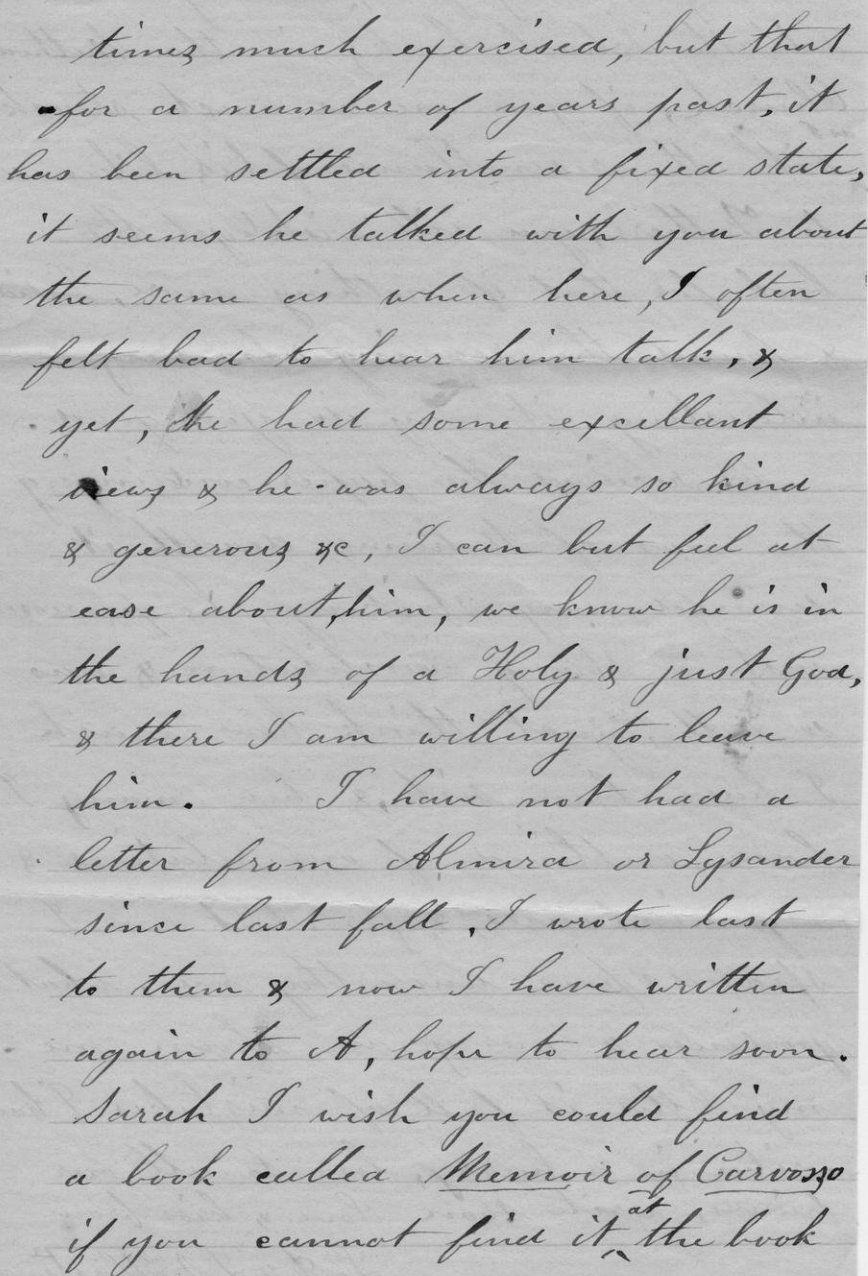 times much exercised, but that
for a number of years past, it
has been settled into a fixed state,
it seems he talked with you about
the same as when here, I often
felt bad to hear him talk, &
yet, he had some excellant
views & he was always so kind
& generous &c, I can but feel at
ease about him, we know he is in
the hands of a Holy & just God,
& there I am willing to leave
him. I have not had a
letter from Almira or Lysander
since last fall, I wrote last
to them & now I have written
again to A, hope to hear soon.
Sarah I wish you could find
a book called Memoir of Carvosso
if you cannot find it at the book